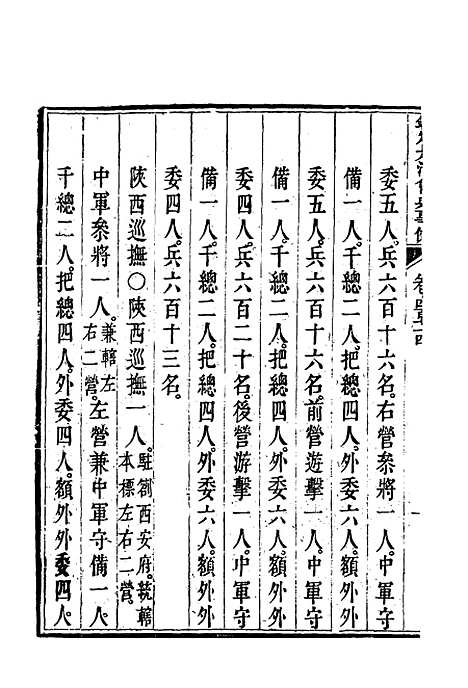 欽定大清會典事例 卷四百
委五人。兵六百十六名。右營參將一人。中軍守
備一人。千總二人。把總四人。外委六人。額外外
委五人。兵六百十六名。前營遊擊一人。中軍守
備一人。千總二人。把總四人。外委六人。額外外
委四人。兵六百二十名。後營游擊一人。中軍守
備一人。千總二人。把總四人。外委六人。額外外
委四人。兵六百十三名。
陝西巡撫○陝西巡撫一人。駐劄西安府。統轄本標左右二營。
中軍參將一人。兼轄左右二營。左營兼中軍守備一人。
千總二人。把總四人。外委四人。額外外委四人。